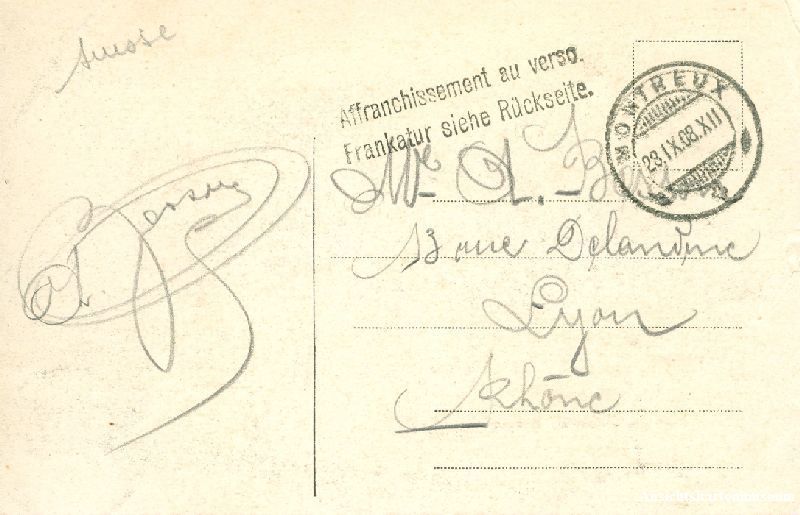 Suisse
Affranchissement au verso.
Frankatur siehe Rückseite.
MONTREUX
23.IX.08.XII
Mr A.
A.
13 rue Delandine
Lyon
Rhône